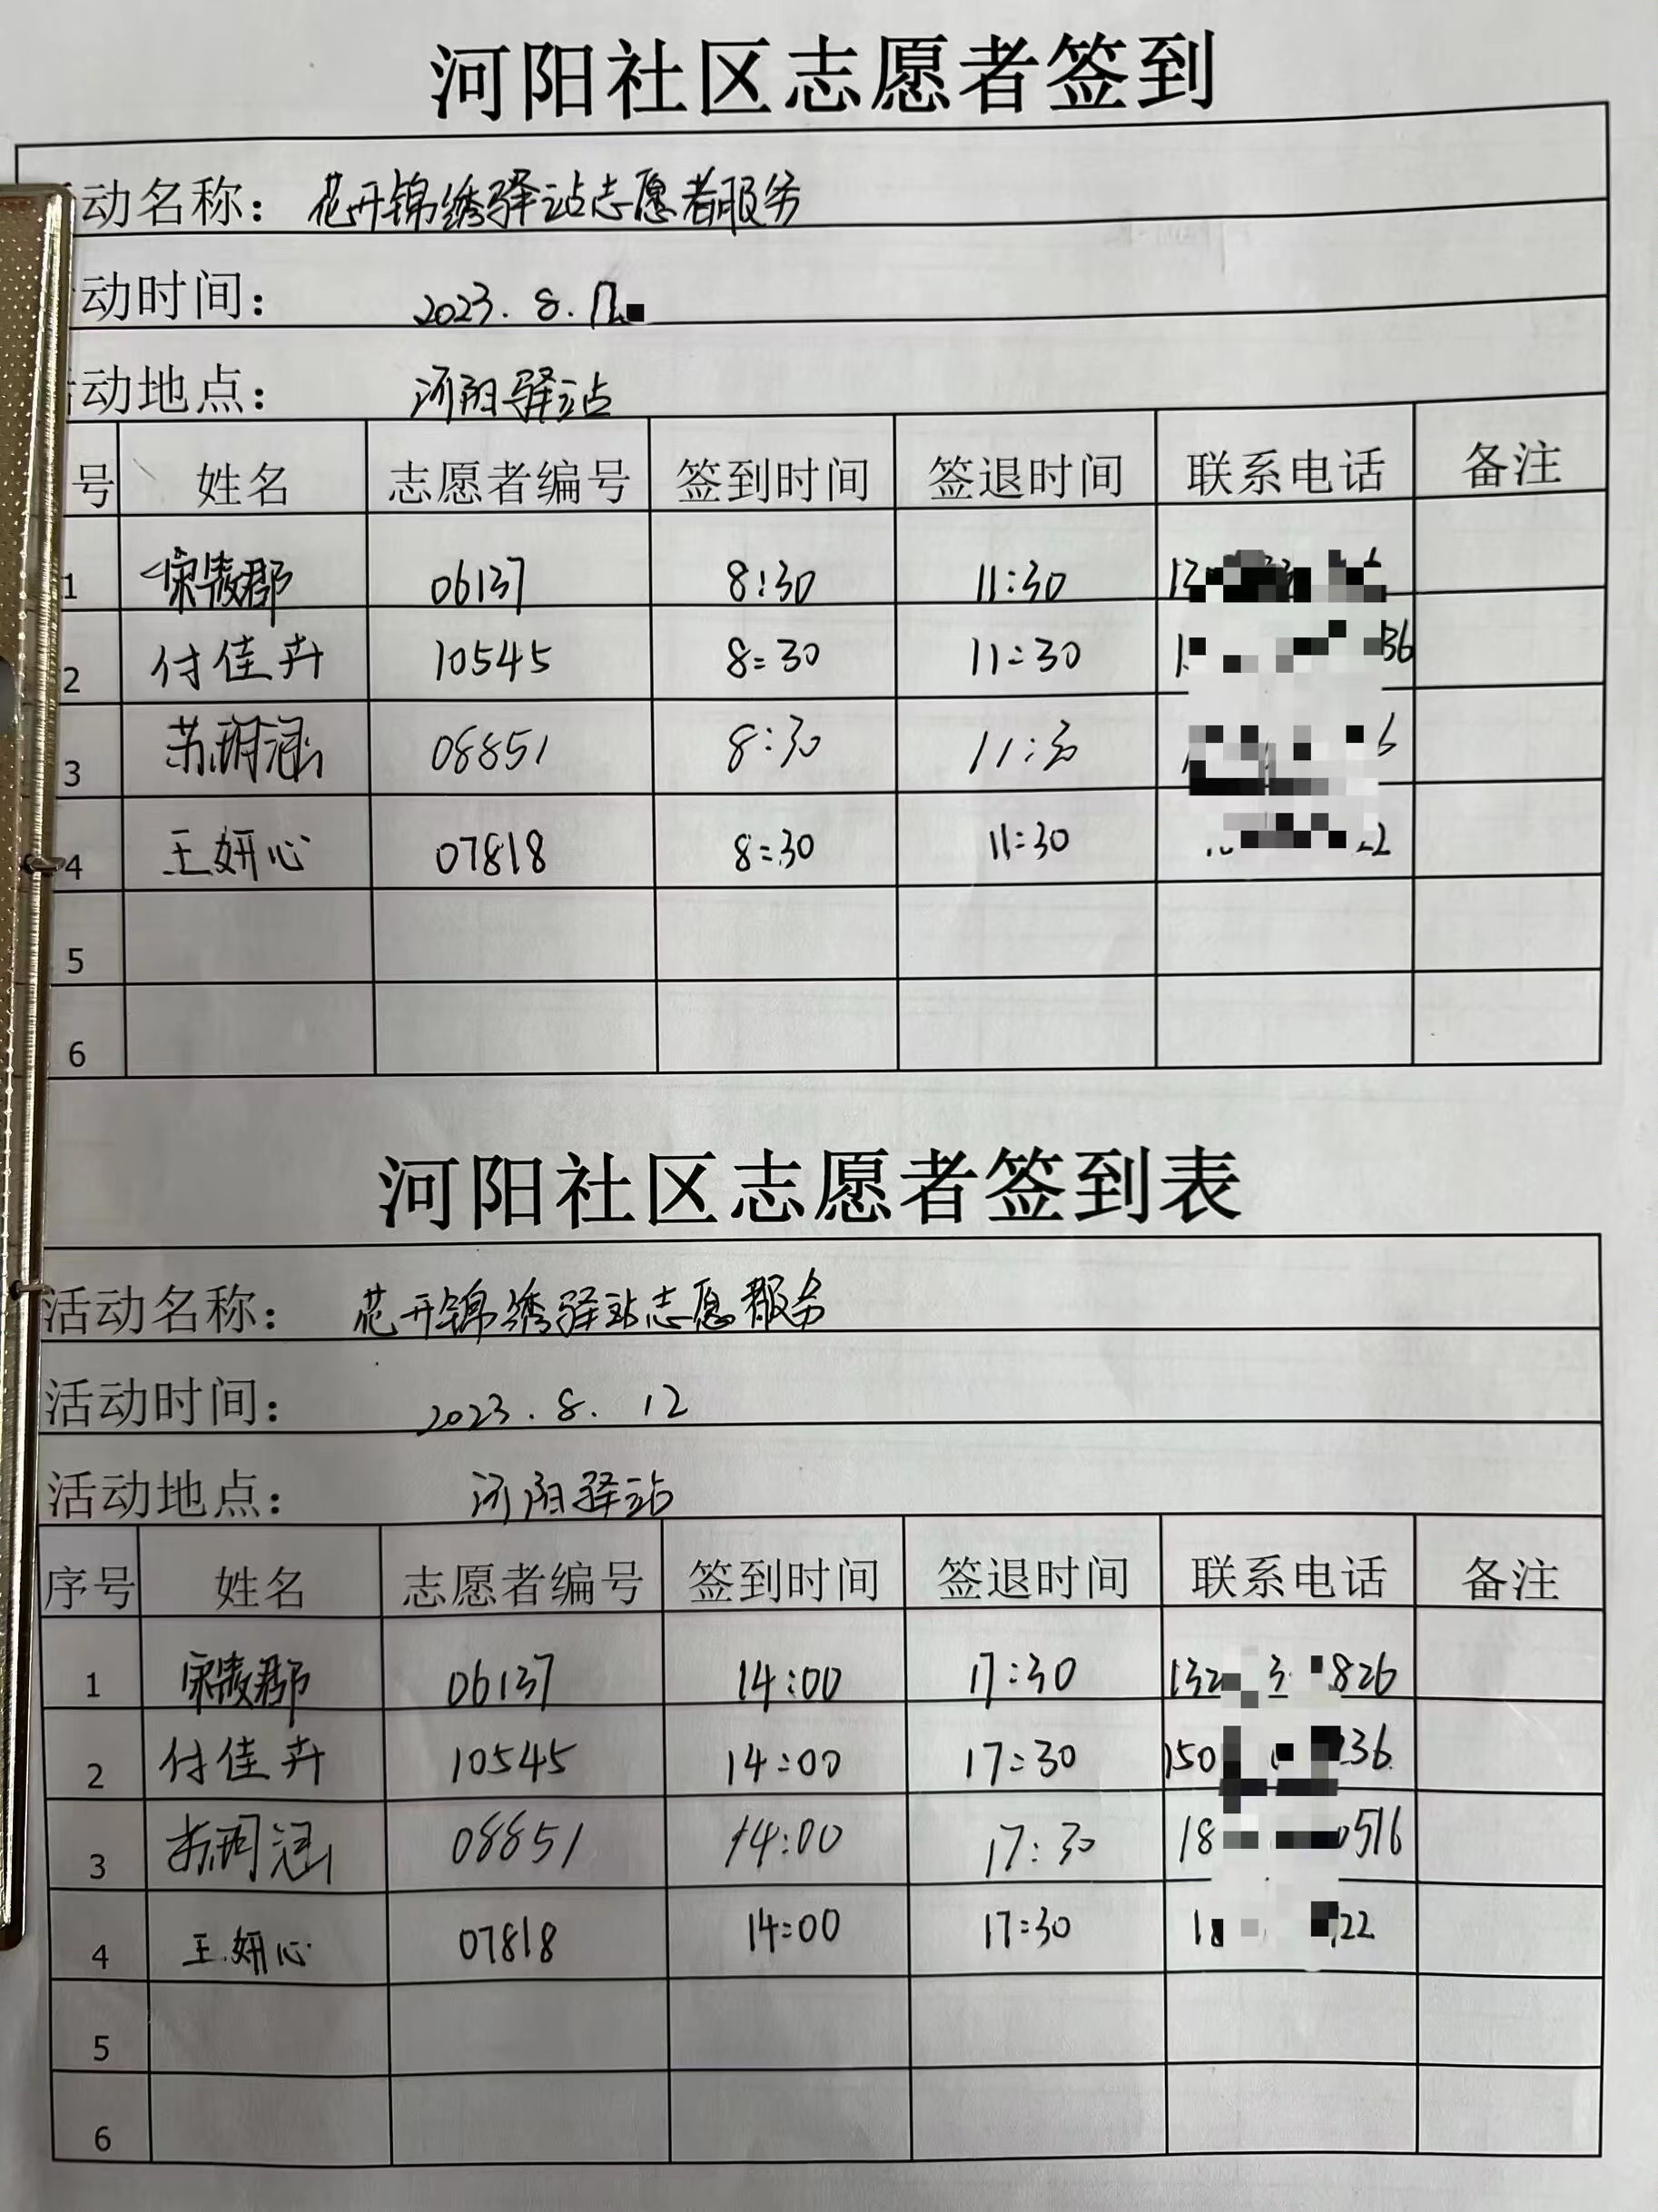 河阳社区志愿者签到
动名称： 花开锦绣驿站志愿者服务
动时间： 2023.8.
动地点： 河阳驿站
号 姓名 志愿者编号 签到时间 签退时间 联系电话 备注
1 06137 8:30 11:30
2 付佳卉 10545 8:30 11:30 36
3 苏玥涵 08851 8:30 11:30 6
4 王妍心 07818 8:30 11:30
5
6
河阳社区志愿者签到表
活动名称： 花开锦绣驿站志愿者服务
活动时间： 2023.8.12
活动地点： 河阳驿站
序号 姓名 志愿者编号 签到时间 签退时间 联系电话 备注
1 06137 14:00 17:30 132 3 826
2 付佳卉 10545 14:00 17:30 150 236
3 苏玥涵 08851 14:00 17:30 18 0516
4 王妍心 07818 14:00 17:30 22
5
6